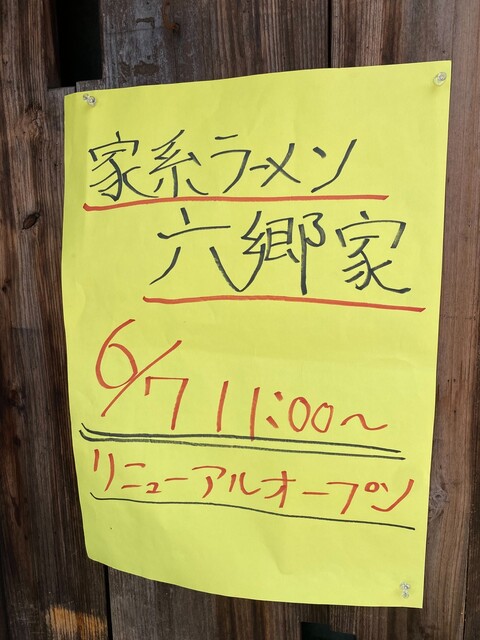 家系ラーメン
六郷家
6/7 11:00～
リニューアルオープン